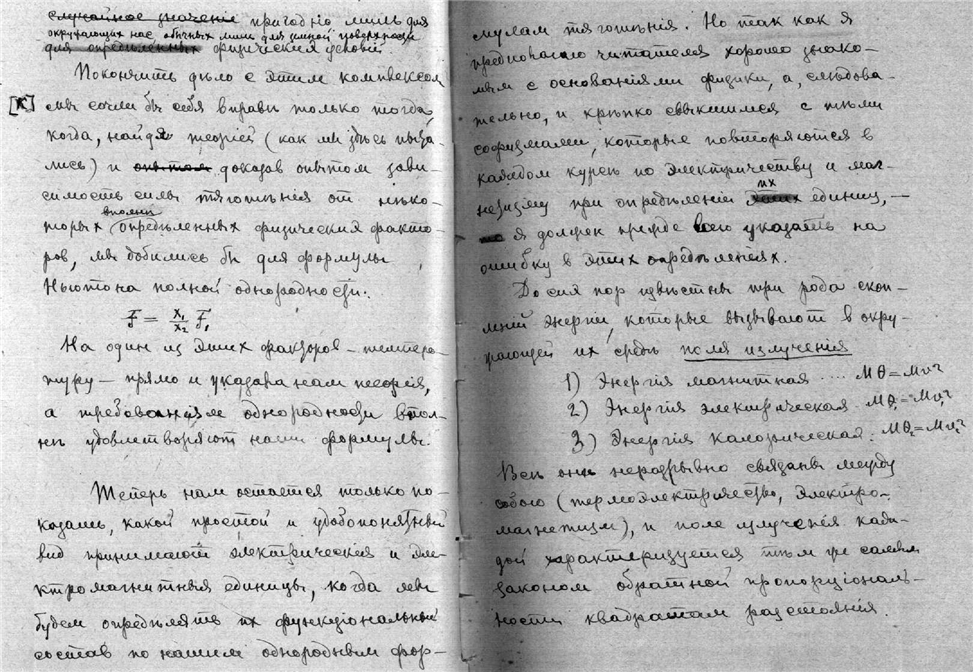 случайное значение пригодно лишь для
окружающих нас обычных лишь для земной поверхности
для определенных физических условий
Покончить дѣло с этим комплексом
[К] мы сочли бы себя вправѣ только тогда,
когда, найдя теоріей (как мы здѣсь пыта-
лись) и опытом доказав опытом зави-
симость силы тяготѣнія от нѣко-
торых вполнѣ опредѣленных физических факто-
ров, мы добились бы для формулы
Ньютона полной однородности:
F = x₁/x₂ F₁
На один из этих факторов – темпера-
туру – прямо и указала нам теорія,
а требованіям однородности впол-
нѣ удовлетворяют наши формулы.
Теперь нам остается только по-
казать, какой простой и удобопонятный
вид принимают электрическія и эле-
ктромагнитныя единицы, когда мы
будем опредѣлять их функціональный
состав по нашим однородным фор-
мулам тяготѣнія. Но так как я
предполагаю читателя хорошо знако-
мым с основаніями физики, а, слѣдова-
тельно, и крѣпко свыкшимся с тѣми
софизмами, которые повторяются в
каждом курсѣ по электричеству и маг-
нетизму при опредѣленіи их единиц, –
я должен прежде всего указать на
ошибку в этих опредѣленіях.
До сих пор извѣстны три рода скоп-
леній энергіи, которые вызывают в окру-
жающей их средѣ поля излученія
1) Энергія магнитная .... Mθ = Mv²
2) Энергія электрическая. Mθ₁ = Mv₁²
3) Энергія калорическая. Mθ₂ = Mv₂²
Всѣ онѣ неразрывно связаны между
собою (термоэлектричество, электро-
магнетизм), и поле излученія каж-
дой характеризуется тѣм же самым
законом обратной пропорціональ-
ности квадратам разстоянія.